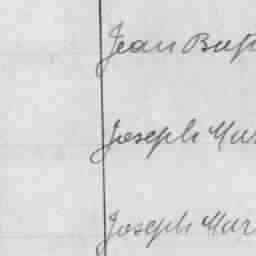 Jean Bap
Joseph Mar
Joseph Mar